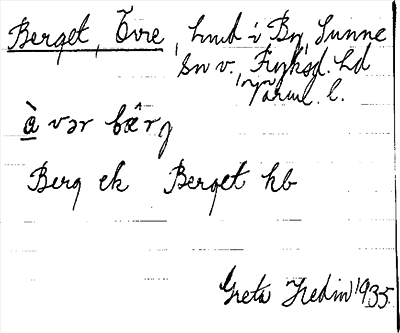 Berget, Övre, hmd i By, Sunne
sn v., Fryksd. hd
Värml. l.
à vər bæ̂rj
Berg ek Berget kb
Greta Hedin 1935